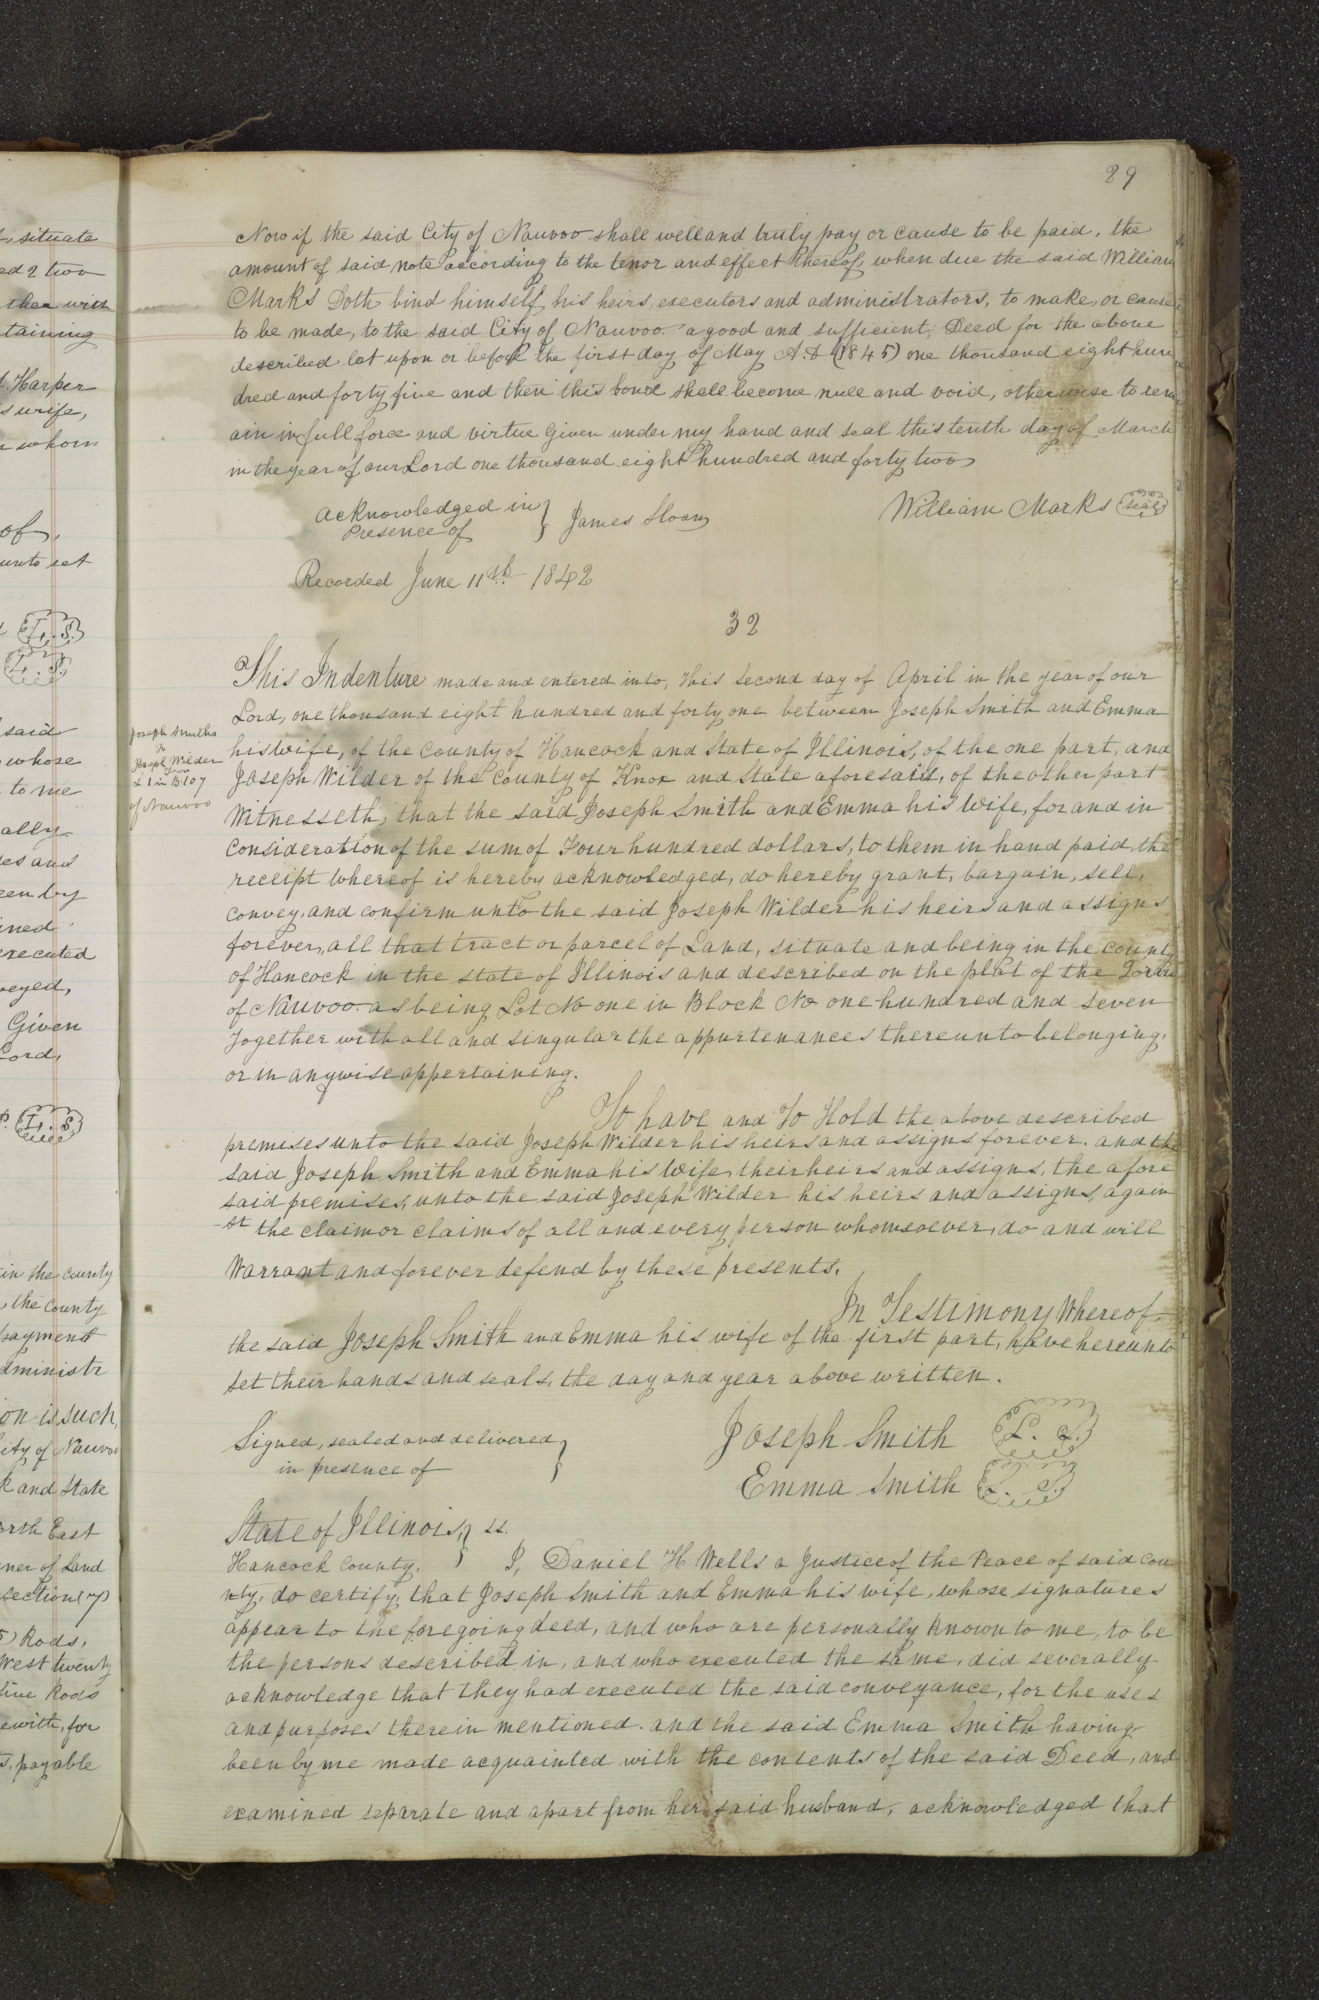 29
Now if the said City of Nauvoo shall well and truly pay or cause to be paid, the
amount of said note according to the tenor and effect thereof, when due the said William
Marks Doth bind himself, his heirs, executors and administrators, to make, or cause
to be made, to the said City of Nauvoo a good and sufficient, Deed for the above
described lot upon or before the first day of May A.D (1845) one thousand eight hun
dred and forty five and then this bond shall become null and void, otherwise to rem
ain in full force and virtue Given under my hand and seal this tenth day of March
in the year of our Lord one thousand eight hundred and forty two
William Marks (seal)
acknowledged in } James Sloan
Presence of
Recorded June 11th 1842
32
This Indenture made and entered into, this second day of April in the year of our
Lord, one thousand eight hundred and forty one between Joseph Smith and Emma
his wife, of the county of Hancock and State of Illinois, of the one part, and
Joseph Wilder of the county of Knox and State aforesaid, of the other part
Witnesseth, that the said Joseph Smith and Emma his wife, for and in
consideration of the sum of Four hundred dollars, to them in hand paid, the
receipt whereof is hereby acknowledged, do hereby grant, bargain, sell,
convey, and confirm unto the said Joseph Wilder his heirs and assigns
forever, all that tract or parcel of Land, situate and being in the county
of Hancock in the state of Illinois and described on the plat of the Town
of Nauvoo as being Lot No one in Block No one hundred and seven
Together with all and singular the appurtenances thereunto belonging,
or in anywise appertaining.
To have and To Hold the above described
premeses unto the said Joseph Wilder his heirs and assigns forever. and the
said Joseph Smith and Emma his wife, their heirs and assigns, the afore
said premises, unto the said Joseph Wilder his heirs and assigns, again
-st the claim or claims of all and every person whomsoever, do and will
Warrant and forever defend by these presents.
In Testimony Whereof
the said Joseph Smith and Emma his wife of the first part, have hereunto
set their hands and seals, the day and year above written.
Signed, sealed and delivered } Joseph Smith L. S.
in presence of Emma Smith L. S.
State of Illinois, } ss.
Hancock County. I, Daniel H Wells a Justice of the Peace of said cou
nty, do certify, that Joseph Smith and Emma his wife, whose signatures
appear to the foregoing deed, and who are personally known to me, to be
the persons described in, and who executed the same, did severally
acknowledge that they had executed the said conveyance, for the uses
and purposes therein mentioned. and the said Emma Smith having
been by me made acquainted with the contents of the said Deed, and
examined separate and apart from her said husband, acknowledged that
Joseph Smiths
to
Joseph Wilder
L 1 in B 107
of Nauvoo
situate
ed 2 two
ther with
taining
Harper
s wife,
whom
of,
unto set
L. S.
L. S.
said
whose
to me
ally
ses and
een by
ined
executed
veyed,
Given
Lord,
L. S.
in the county
the county
payment
dministr
on is such,
ity of Nauvoo
k and State
orth East
ner of Land
section (7)
5) Rods,
West twenty
five Rods
ewith, for
payable